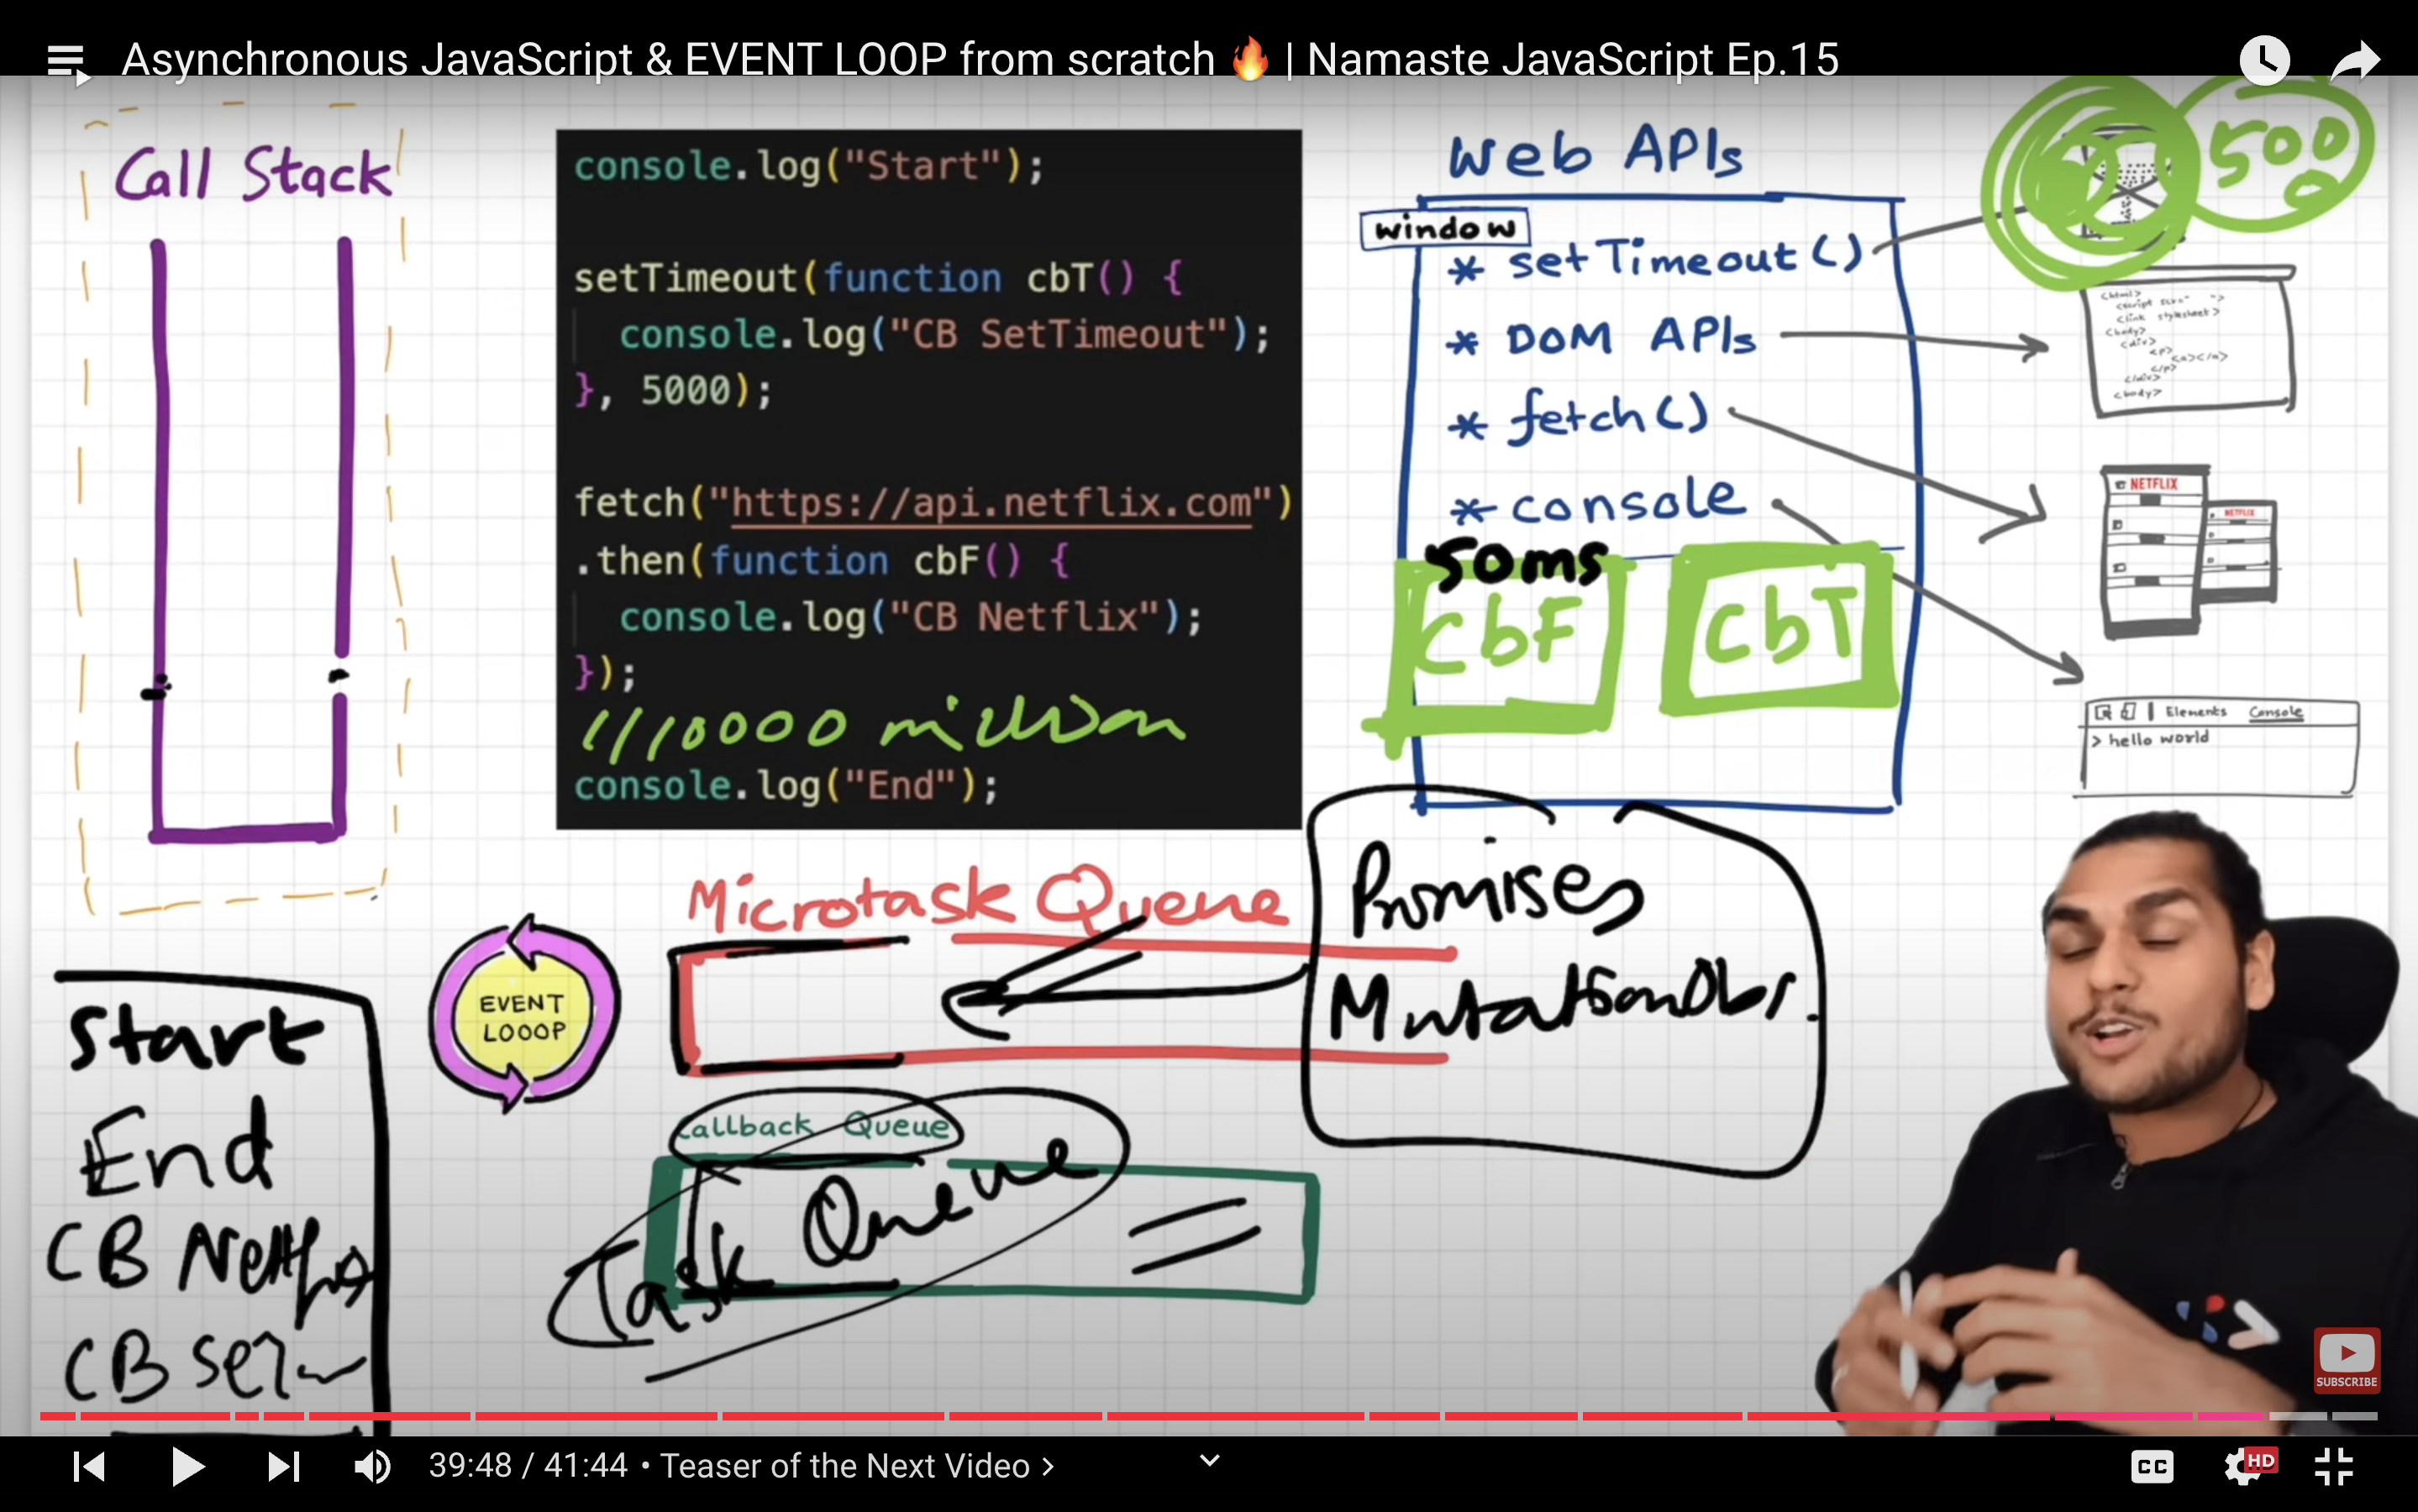 Asynchronous JavaScript & EVENT LOOP from scratch 🔥 | Namaste JavaScript Ep.15
Call Stack
console.log("Start");
setTimeout(function cbT() {
console.log("CB SetTimeout");
}, 5000);
fetch("https://api.netflix.com")
.then(function cbF() {
console.log("CB Netflix");
});
// 10000 million
console.log("End");
Web APIs
window
* setTimeout()
* DOM APIs
* fetch()
* console
50ms
CbF
CbT
500
0
<html>
<link stylesheet>
<body>
<div>
<p>
<a></a>
</p>
</div>
<body>
NETFLIX
NETFLIX
Elements Console
> hello world
Microtask Queue
Promises
EVENT
LOOOP
Callback Queue
Task Queue
Start
End
CB
CB
SUBSCRIBE
39:48 / 41:44 • Teaser of the Next Video >
CC
HD